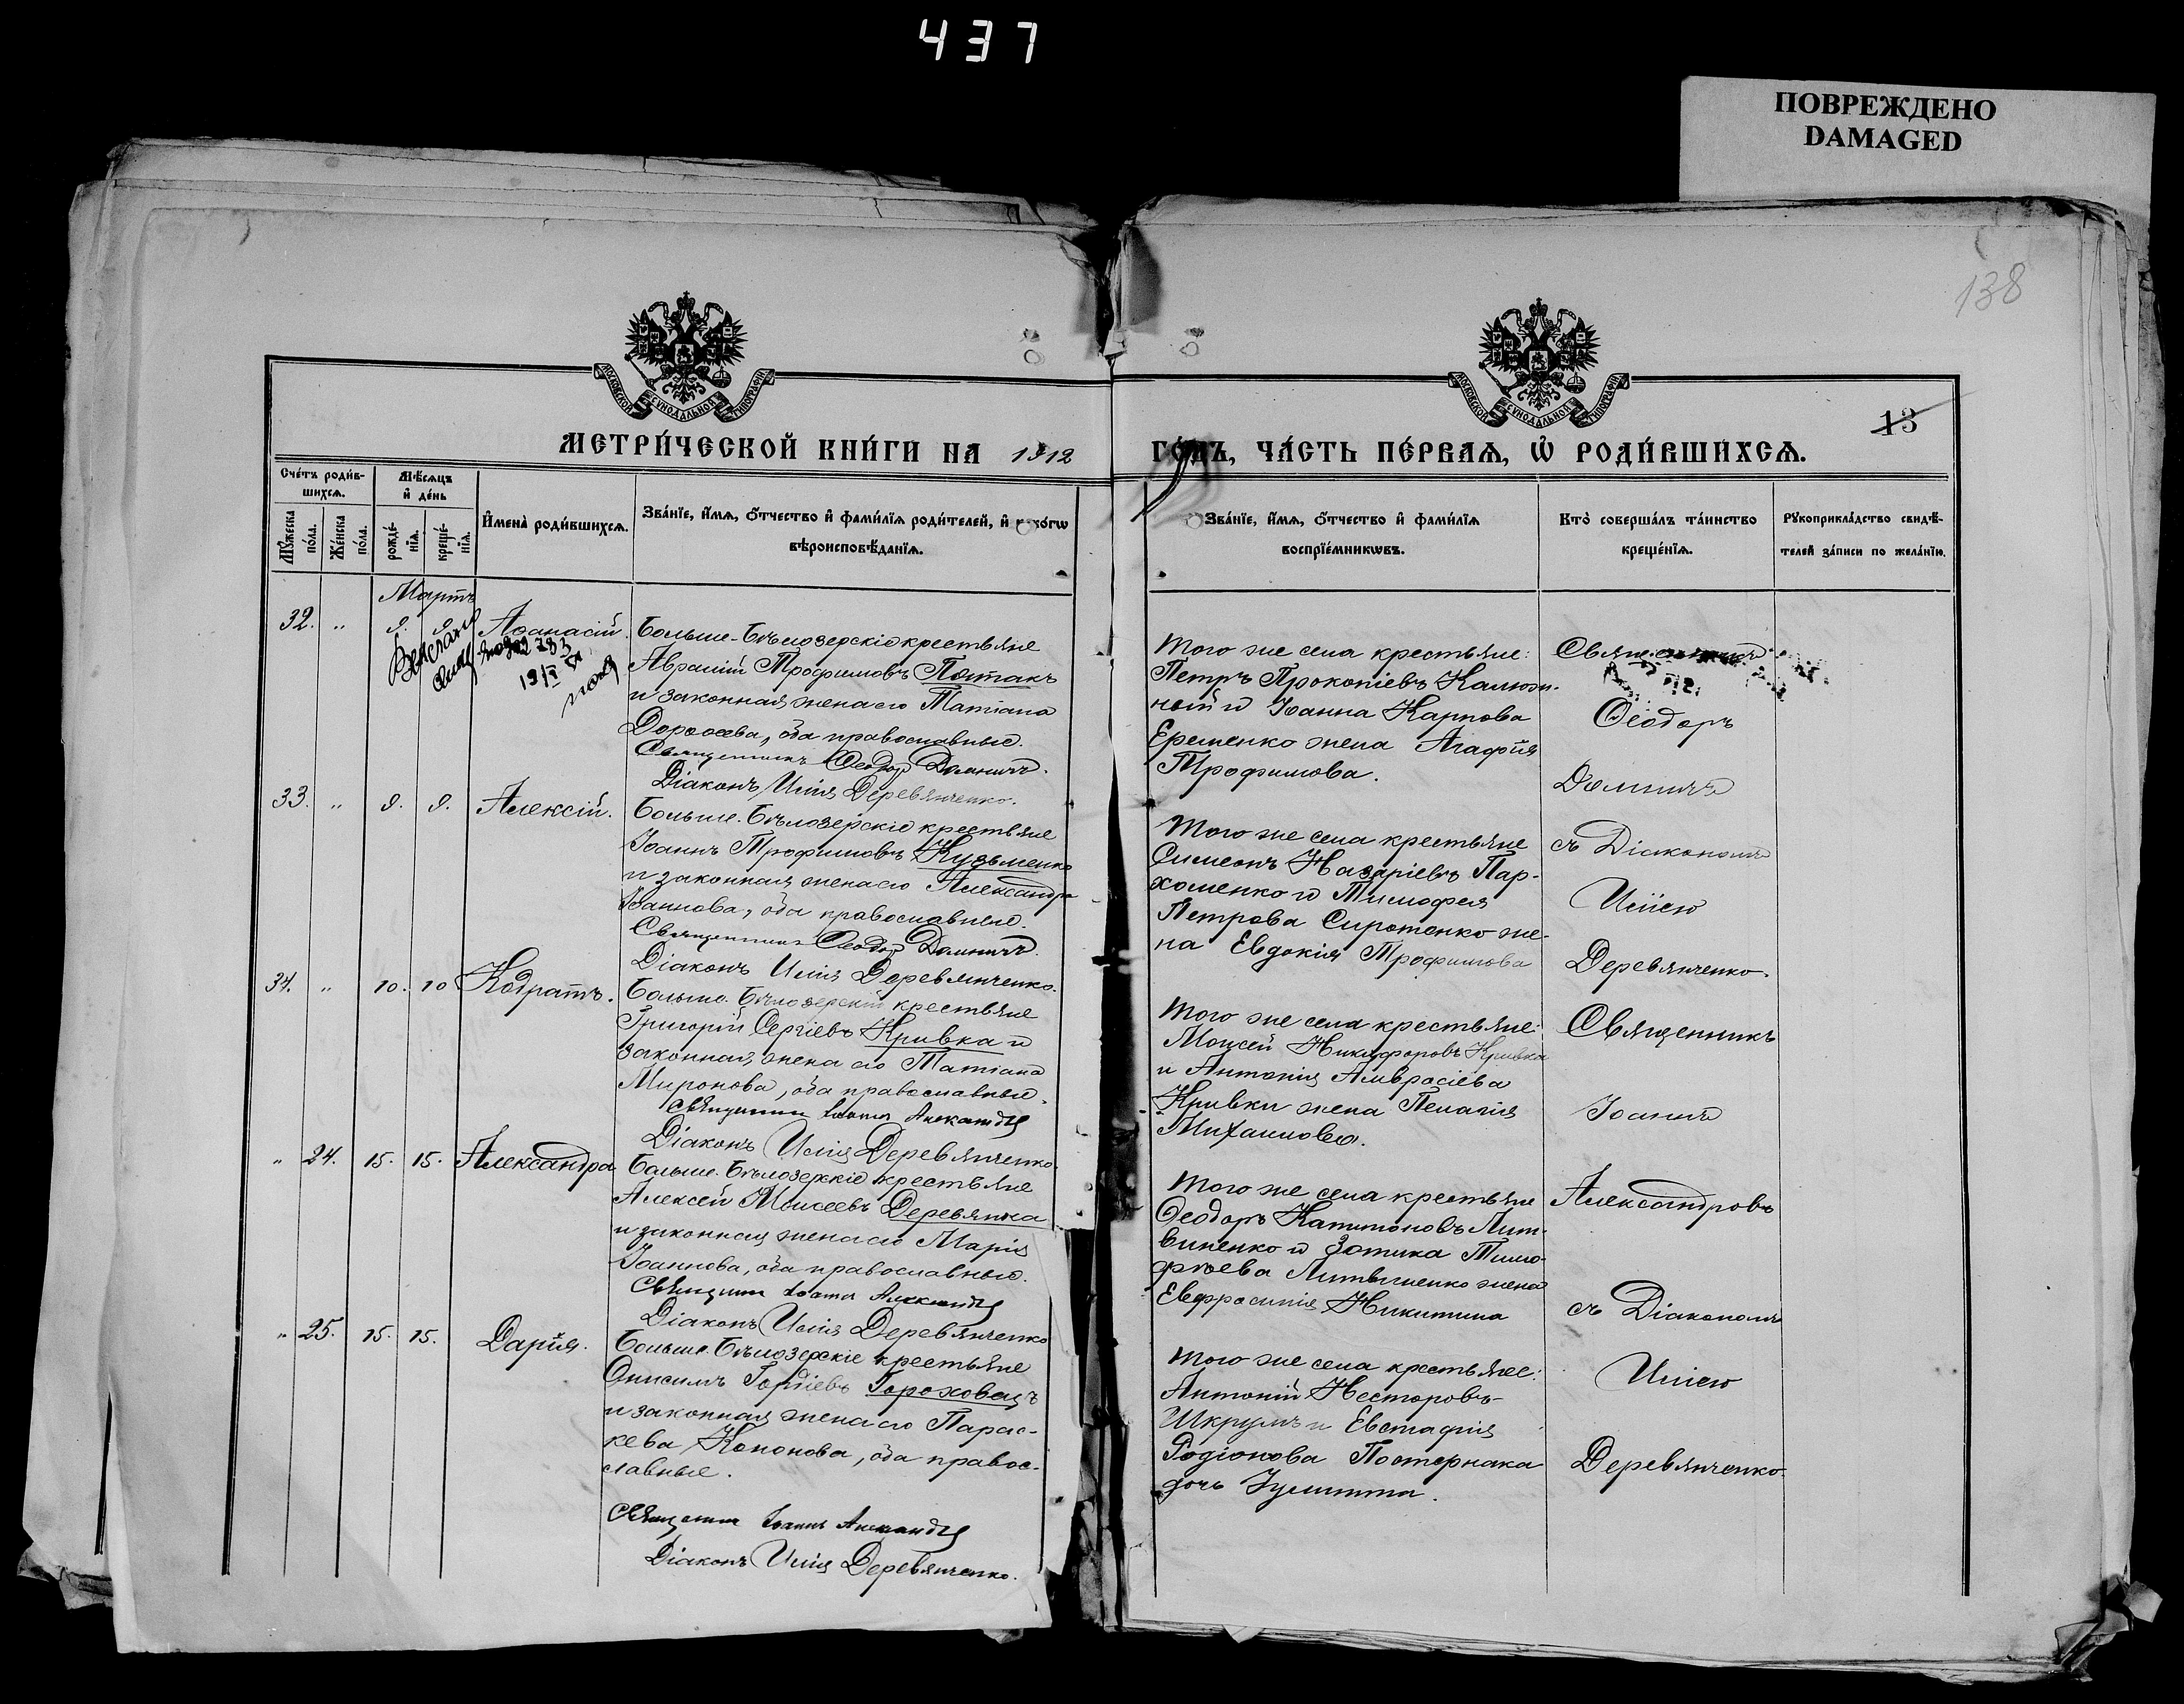 437
ПОВРЕЖДЕНО
DAMAGED
138
МОСКОВСКОЙ СУНОДАЛЬНОЙ ТИПОГРАФІИ
МОСКОВСКОЙ СУНОДАЛЬНОЙ ТИПОГРАФІИ
13
МЕТРИ́ЧЕСКОЙ КНИ́ГИ НА 1912
ГО́ДЪ, ЧА́СТЬ ПЕ́РВАѦ, Ѡ҆ РОДИ́ВШИХСѦ.
Сче́тъ роди́в-
шихсѧ.
Мѣ́сѧцъ
и҆ де́нь
Мꙋ́жеска
по́ла.
Же́нска
по́ла.
рожде́-
нїѧ.
креще́-
нїѧ.
И҆мена̀ роди́вшихсѧ.
Зва́нїе, и҆́мѧ, ѻ҆́тчество и҆ фамн́лїѧ роди́телей, и҆ како́гѡ
вѣроисповѣ́данїѧ.
Зва́нїе, и҆́мѧ, ѻ҆́тчество и҆ фами́лїѧ
воспрїе́мникѡвъ.
Кто̀ соверша́лъ та́инство
креще́нїѧ.
Рꙋкоприкла́дство свидѣ́-
телей за́писи по жела́нїю.
Мартъ
32. " 9. 9. Аѳанасій.
Больше-Бѣлозерскіе крестьяне
Аврамій Трофимовъ Потакъ
и законная жена его Татіана
Дороѳеева, оба православные.
Священникъ Ѳеодоръ Домничъ.
Діаконъ Илія Деревянченко.
Того же села крестьяне:
Петръ Прокопіевъ Калюж-
ный и Іоанна Карпова
Еременко жена Агафія
Трофимова.
33. " 9. 9. Алексій.
Больше-Бѣлозерскіе крестьяне
Іоаннъ Трофимовъ Кузьменко
и законная жена его Александра
Іоаннова, оба православные.
Священникъ Ѳеодоръ Домничъ.
Діаконъ Илія Деревянченко.
Того же села крестьяне
Симеонъ Назаріевъ Пар-
хоменко и Тимофея
Петрова Сиротенко же-
на Евдокія Трофимова
Ѳеодоръ
Домничъ
съ Діакономъ
Иліею
Деревянченко.
34. " 10. 10 Кодратъ.
Больше-Бѣлозерскіе крестьяне
Григорій Сергіевъ Кривка и
законная жена его Татіана
Миронова, оба православные.
Священникъ Іоаннъ Александровъ
Діаконъ Илія Деревянченко.
Того же села крестьяне:
Моисей Никифоровъ Кривка
и Антонія Амвросіева
Кривки жена Пелагія
Михаилова.
" 24. 15. 15. Александра
Больше-Бѣлозерскіе крестьяне
Алексей Моисеевъ Деревянка
и законная жена его Марія
Іоаннова, оба православные.
Священникъ Іоаннъ Александровъ
Діаконъ Илія Деревянченко
Того же села крестьяне
Ѳеодоръ Капитоновъ Лит-
виненко и Зотика Тимо-
фѣева Литвиненко жена
Евфросинія Никитина
" 25. 15. 15. Дарія.
Больше-Бѣлозерскіе крестьяне
Онисимъ Гордіевъ Гороховецъ
и законная жена его Парас-
кева Кононова, оба правос-
лавные.
Священникъ Іоаннъ Александровъ
Діаконъ Илія Деревянченко.
Того же села крестьяне:
Антоній Несторовъ
Шкрумъ и Евстафія
Родіонова Постернака
дочь Іулитта.
Священникъ
Іоаннъ
Александровъ
съ Діакономъ
Иліею
Деревянченко.